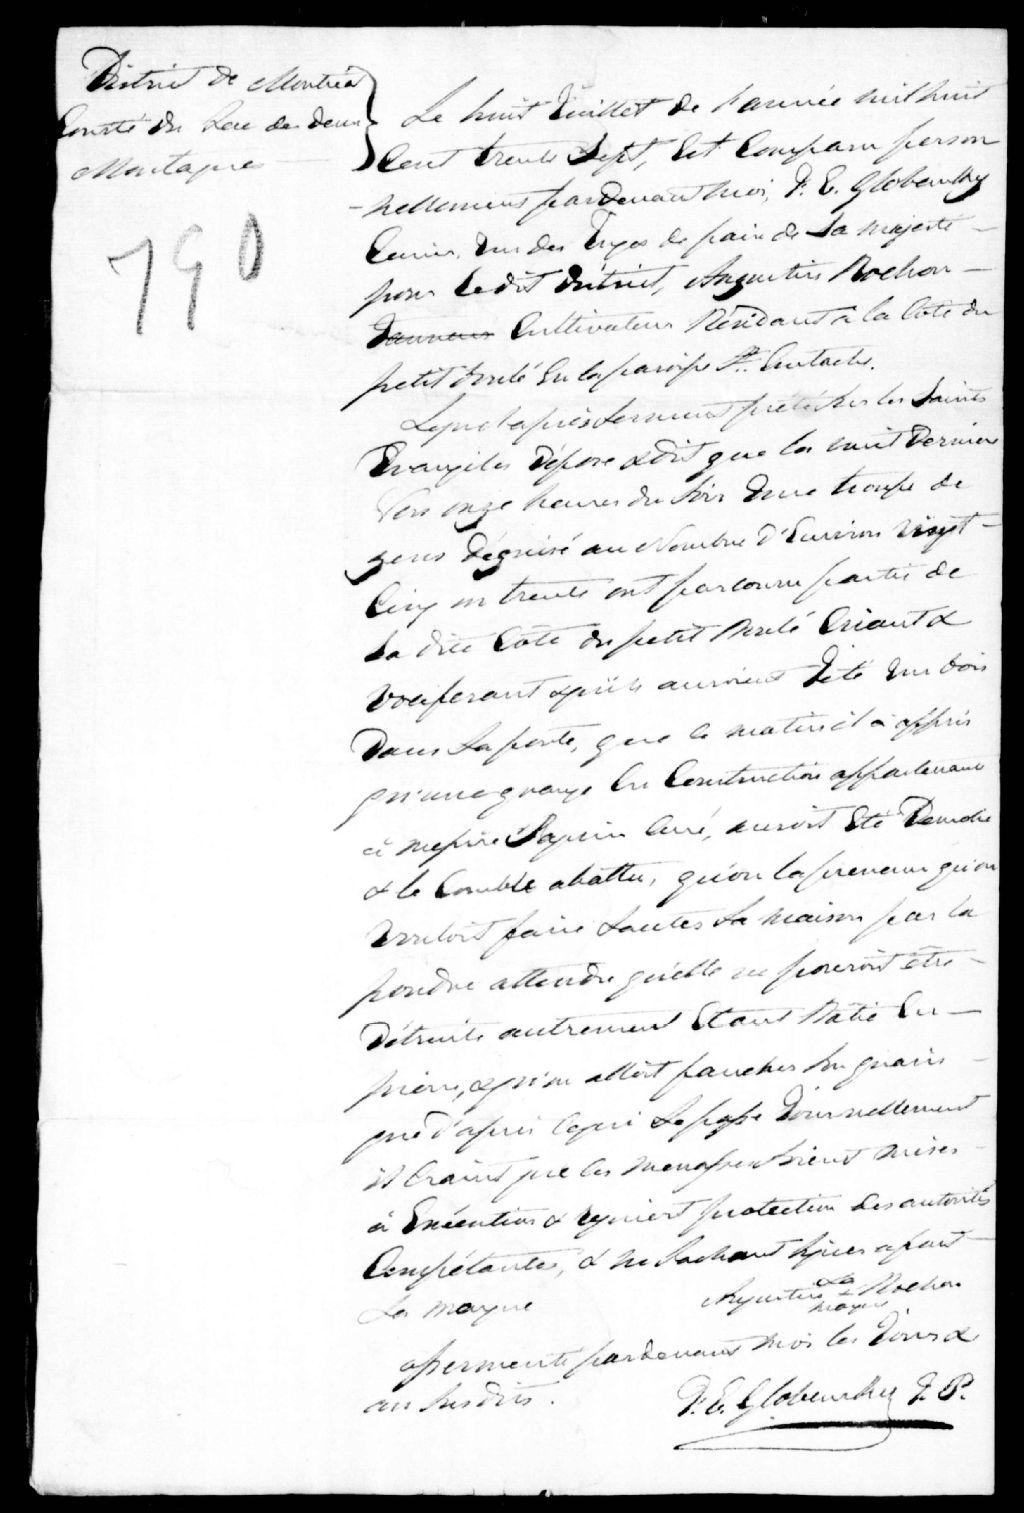 District de Montréal
Comté du Lac des deux
Montagne
790
Le huit Juillet de l'année mil huit
Cent trente Sept, Est Comparu person
-nellement pardevant moi, F. E. Globensky
Ecuier, Un des Juges de paix de Sa Majesté
pour le dit District, Augustin Rochon
Cultivateur Résidant a la Côte du
petit Brulé En la paroisse St. Eustache.
Lequel après Serment prété Sur les Saints
Evangiles Dépose & dit que la nuit Derniere
Vers onze heures du Soir Une troupe de
gens déguisé au Nombre d'Environ vingt
Cinq ou trente ont parcouru partie de
La dite Côte du petit Brulé Criant &
Vociferant & qu'ils auroient Jeté Un bois
Dans Sa porte, que ce matin il a appris
qu'une grange En Construction appartenant
à messire Paquin Curé, auroit Eté Demolie
& le Comble abattu, qu'on la prevenu qu'on
Vouloit faire Sauter Sa maison par la
poudre attendu qu'elle ne pouroit être
Détruite autrement Etant Batie En
pierre, & qu'on alloit faucher Son grain
que d'après Cequi Se passe Journellement
il Craint que les menasses Soient mises
à Exécution & requiert protection des autorités
Compétantes, & ne Sachant Signer a fait
Sa marque
Augustin Rochon
Sa
marque
assermenté pardevant moi les Jour &
an Susdits.
F. E. Globensky J. P.